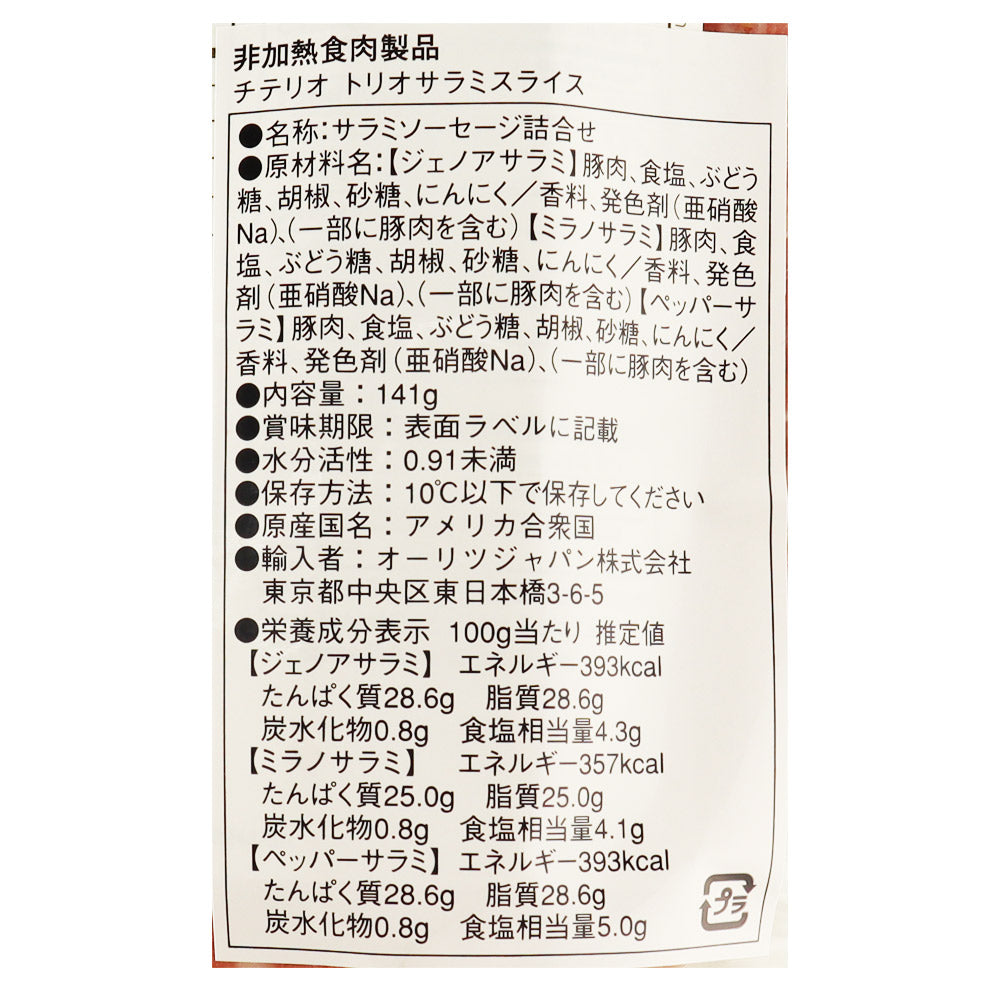 非加熱食肉製品
チテリオ トリオサラミスライス
●名称:サラミソーセージ詰合せ
●原材料名:【ジェノアサラミ】豚肉、食塩、ぶどう
糖、胡椒、砂糖、にんにく／香料、発色剤(亜硝酸
Na)、(一部に豚肉を含む)【ミラノサラミ】豚肉、食
塩、ぶどう糖、胡椒、砂糖、にんにく／香料、発色
剤(亜硝酸Na)、(一部に豚肉を含む)【ペッパーサ
ラミ】豚肉、食塩、ぶどう糖、胡椒、砂糖、にんにく／
香料、発色剤(亜硝酸Na)、(一部に豚肉を含む)
●内容量：141g
●賞味期限：表面ラベルに記載
●水分活性：0.91未満
●保存方法：10℃以下で保存してください
●原産国名：アメリカ合衆国
●輸入者：オーリツジャパン株式会社
東京都中央区東日本橋3-6-5
●栄養成分表示 100g当たり 推定値
【ジェノアサラミ】 エネルギー393kcal
たんぱく質28.6g 脂質28.6g
炭水化物0.8g 食塩相当量4.3g
【ミラノサラミ】 エネルギー357kcal
たんぱく質25.0g 脂質25.0g
炭水化物0.8g 食塩相当量4.1g
【ペッパーサラミ】 エネルギー393kcal
たんぱく質28.6g 脂質28.6g
炭水化物0.8g 食塩相当量5.0g
プラ